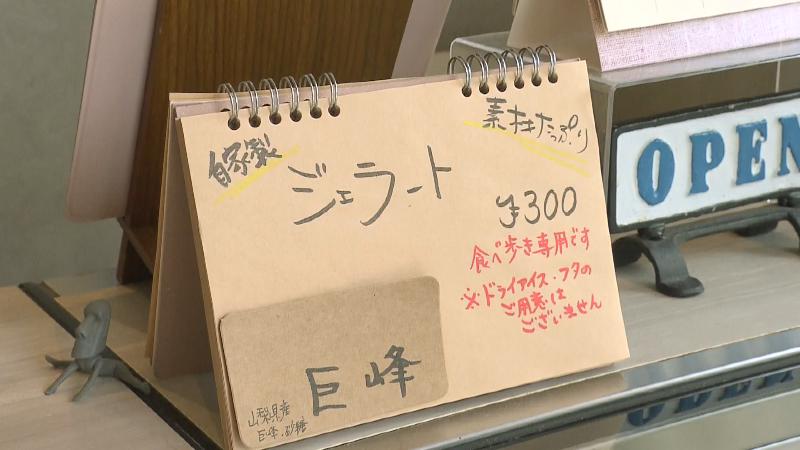 自家製
素材たっぷり
ジェラート
¥300
食べ歩き専用です
※ドライアイス・フタの
ご用意は
ございません
巨峰
山梨県産
巨峰、砂糖
OPEN